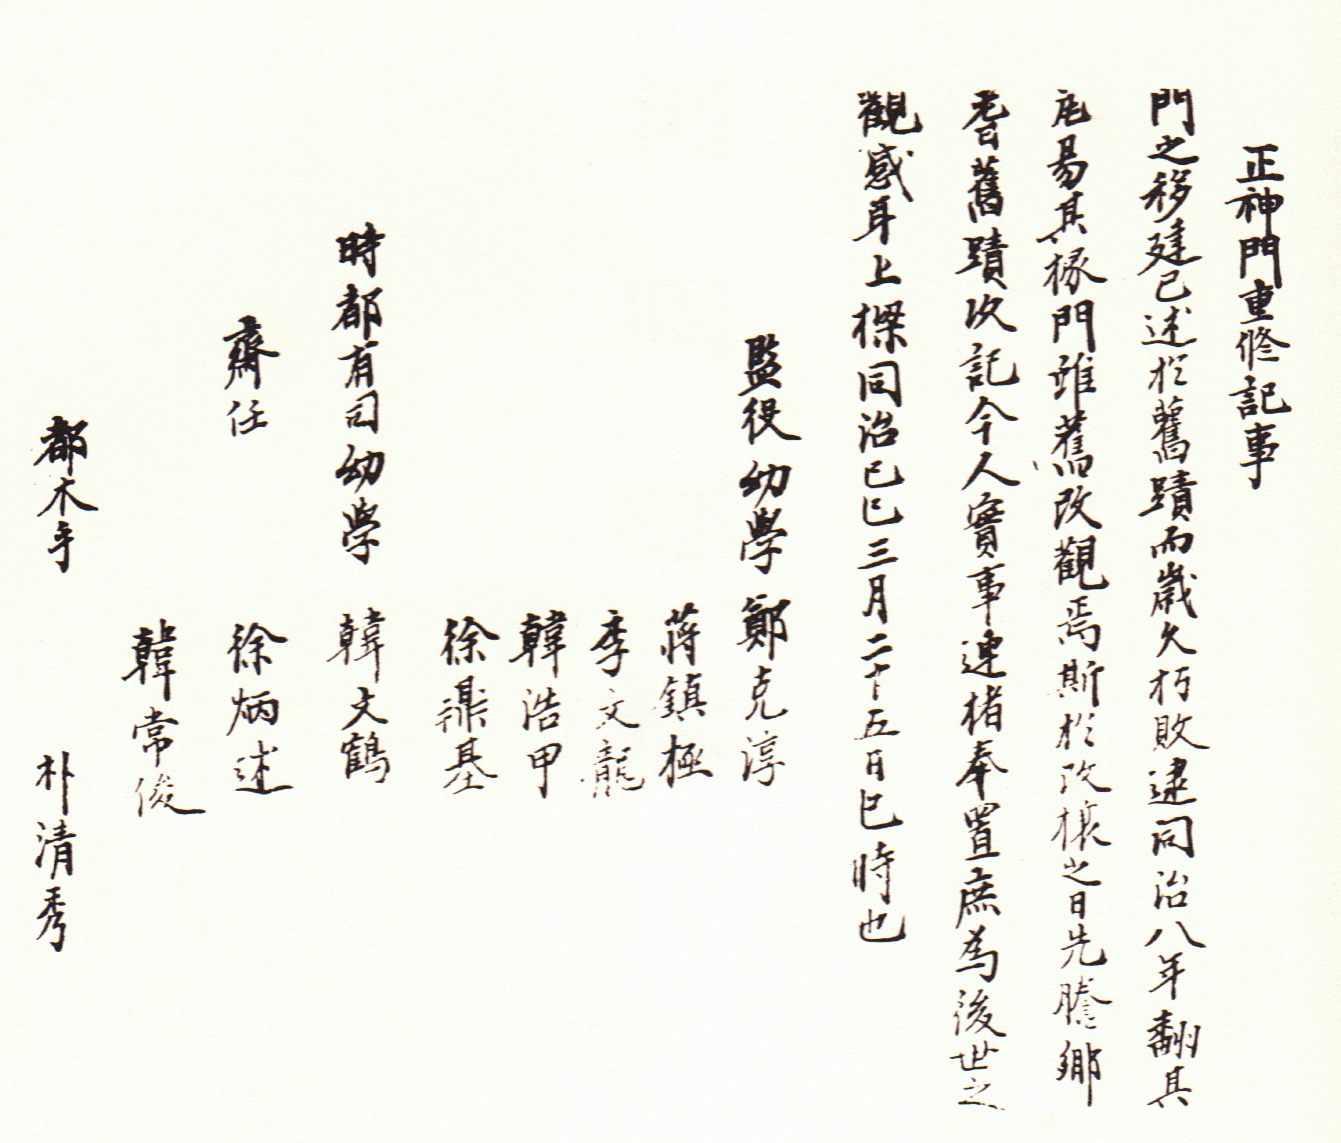 正神門重修記事
門之移建已述於舊蹟而歲久朽敗逮同治八年翻其
瓦易其椽門雖舊改觀焉斯於改樑之日先謄鄉
耆舊蹟次記今人實事連楮奉置庶為後世之
觀感耳上樑同治己巳三月二十五日巳時也
監役 幼學 鄭克淳
蔣鎮極
李文龍
韓浩甲
徐鼎基
時都有司幼學 韓文鶴
齋任 徐炳述
韓常俊
都木手 朴清秀